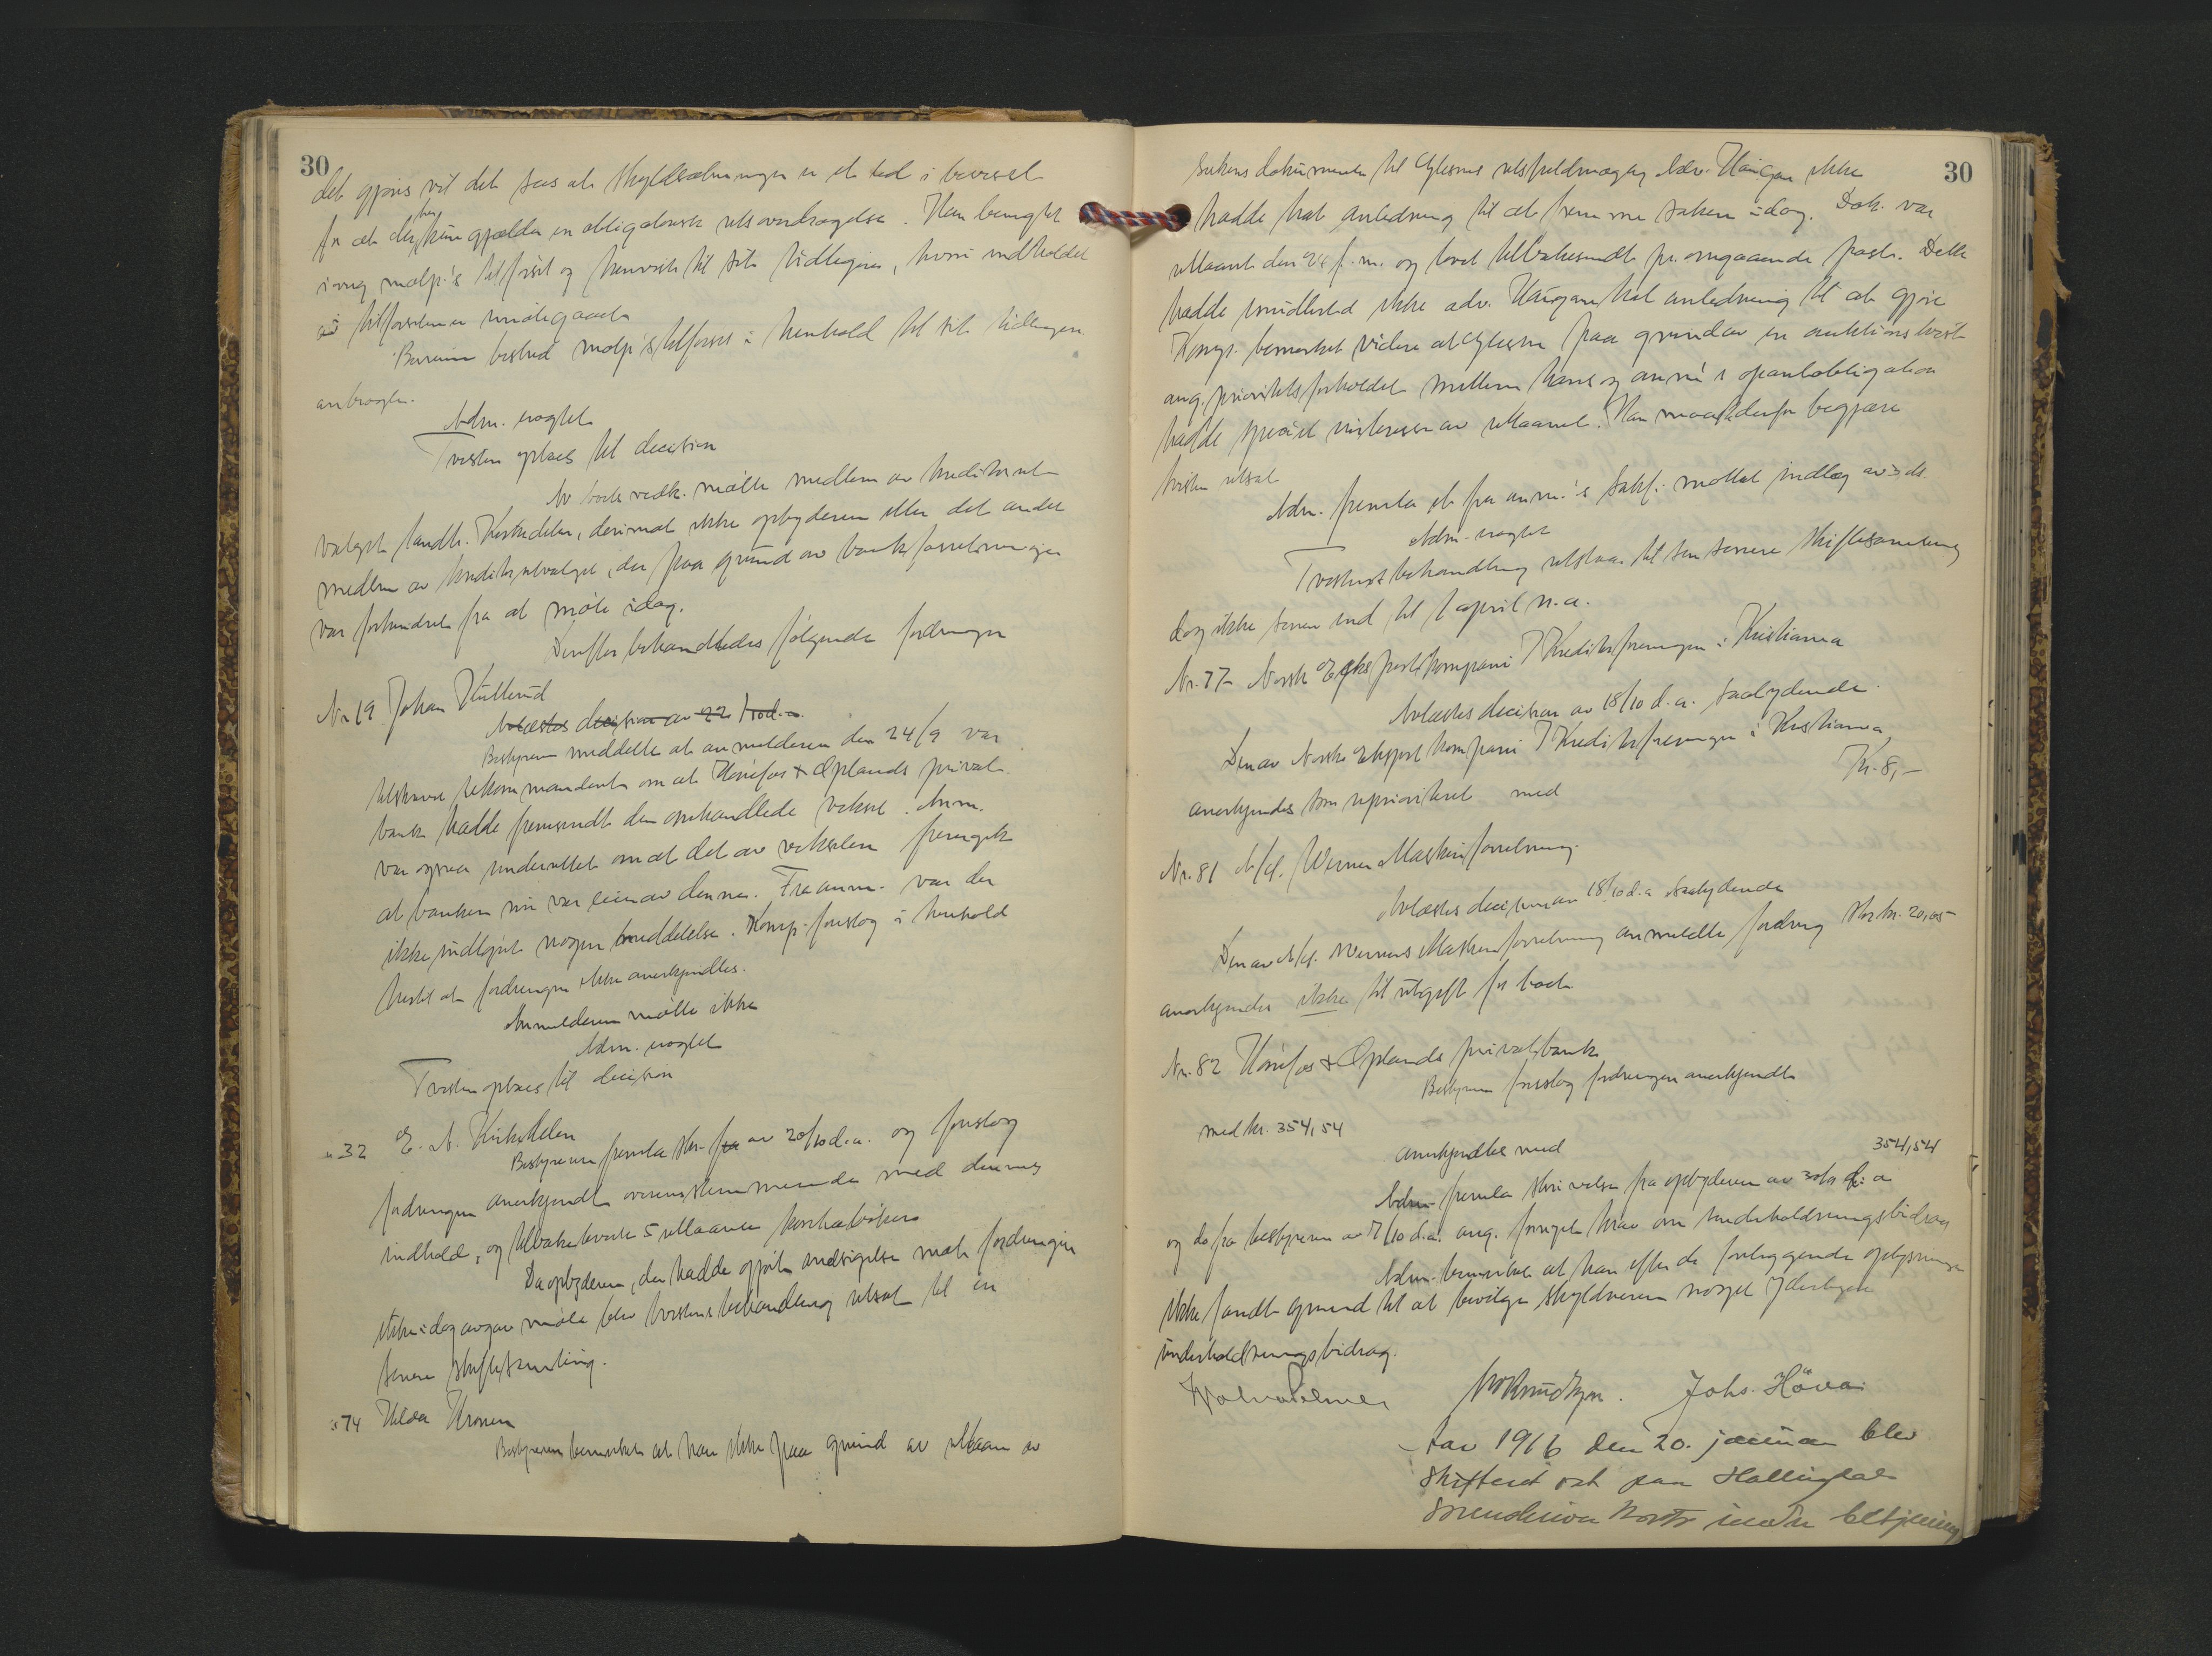 30
det gjøres vil det sees at skyldsætningen er et led i beviset
for at det her kun gjælder en obligatorisk retsoverdragelse. Han benegtet
iøvrig motp.'s tilførsel og henviste til sit tidligere, hvori indholdet
av tilførselen er imøtegaaet
bestred motp's tilførsel i henhold til sit tidligere
anbragte.
Adm. negtet
Tvisten optages til decision
Av boets vedk. møtte medlem av kreditorut-
valget landh. Kirkedelen, derimot ikke opbyderen eller det andet
medlem av kreditorutvalget, der paa grund av bankforretninger
var forhindret fra at møte idag.
Derefter behandledes følgende fordringer
Nr 19 Johan Hullerud
Avlæstes decision av 22 d.a.
Bestyreren meddelte at anmelderen den 24/9 var
tilskrevet rekommandert om at Hønefos & Oplands privat-
bank hadde fremsendt den omhandlede veksel. Anm.
var ogsaa underrettet om at det av vekselen fremgik
at banken nu var eier av denne. Fra anm. var der
ikke indløpet nogen meddelelse. Komp. foreslog i henhold
hertil at fordringen ikke anerkjendtes.
Anmelderen møtte ikke
Adm. negtet
Tvisten optages til decision
" 32 E. A. Kirkedelen
Bestyreren fremla skr. fra av 20/10 d.a. og foreslog
fordringen anerkjendt overensstemmende med dennes
indhold, og tilbakeleverte 5 utlaante kontrabøker
Da opbyderen, der hadde gjort indsigelse mot fordringen
ikke idag avgav møte blev tvistens behandling utsat til en
senere skiftesamling.
" 74 Hilda Kronen
Bestyreren bemerket at han ikke paa grund av utlaan av
30
sakens dokumenter til Glesnes retsfuldmægtig Adv. Haugan ikke
hadde hat anledning til at fremme saken idag. Dok. var
utlaant den 24 f.m. og lovet tilbakesendt pr. omgaaende post. Dette
hadde imidlertid ikke adv. Haugan hat anledning til at gjøre
Komp. bemerket videre at Glesne paa grund av en auktionstvist
ang. prioritetsforholdet mellem hans og anm's panteobligation
hadde speciel interesse av utlaanet. Han maatte derfor begjære
tvisten utsat
Adm. fremla et fra anm.'s sakf. mottat indlæg av ds.
Adm. negtet
Tvistens behandling utstaar til en senere skiftesamling
dog ikke senere end til 1 april n.a.
Nr. 77 Norsk Eksportkompani / Kreditorforeningen i Kristiania
Avlæstes decision av 18/10 d.a. saalydende
Den av Norsk Eksportkompani / Kreditorforeningen i Kristiania,
anerkjendes som uprioritert med Kr. 8,-
Nr. 81 A/S. Werner Maskinforretning.
Avlæstes decision av 18/10 d.a. saalydende
Den av A/S. Werners Maskinforretning anmeldte fordring stor kr. 20,05
anerkjendes ikke til utgift for boet
Nr. 82 Hønefos & Oplands privatbank
Bestyreren foreslog fordringen anerkjendt
med kr. 354,54
anerkjendtes med 354,54
Adm. fremla skrivelse fra opbyderen av 30/9 d. a
og do fra bestyreren av 7/10 d.a. ang. fornyet krav om underholdningsbidrag
Adm. bemerket at han efter de foreliggende oplysninger
ikke fandt grund til at bevilge skyldneren noget yderligere
underholdningsbidrag.
Knudtzen. Johs. Höva
Aar 1916 den 20. januar blev
skifteret sat paa Hallingdal
sorenskriverkontor under betjening